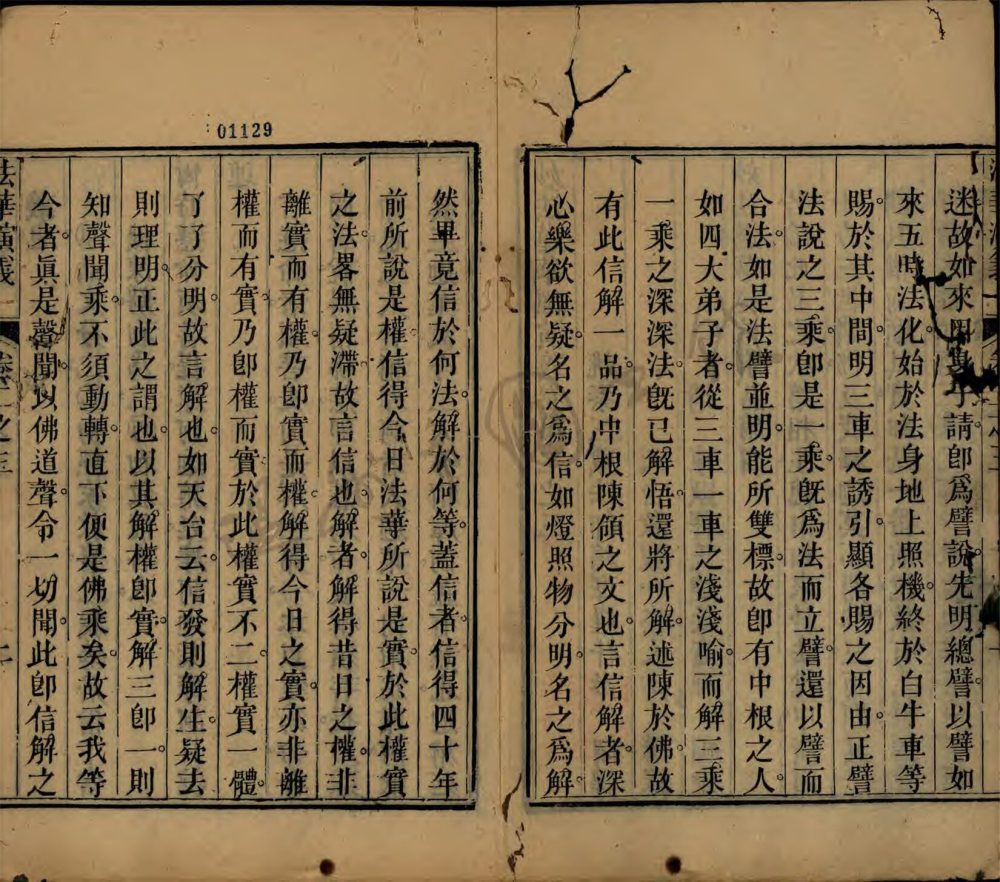 迷故如來因身子請。即爲譬說。先明總譬。以譬如
來五時法化。始於法身地上照機。終於白牛車等
賜。於其中間明三車之誘引。顯各賜之因由。正譬
法說之三乘。即是一乘。旣爲法而立譬。還以譬而
合法。如是法譬並明。能所雙標。故即有中根之人。
如四大弟子者。從三車一車之淺淺喻。而解三乘
一乘之深深法。旣已解悟。還將所解。述陳於佛。故
有此信解一品。乃中根陳領之文也。言信解者。深
心樂欲無疑。名之爲信。如燈照物分明。名之爲解。
然畢竟信於何法。解於何等。蓋信者。信得四十年
前所說是權。信得今日法華所說是實。於此權實
之法。畧無疑滯。故言信也。解者。解得昔日之權。非
離實而有權。乃即實而權。解得今日之實。亦非離
權而有實。乃即權而實。於此權實不二。權實一體。
了了分明。故言解也。如天台云。信發則解生。疑去
則理明。正此之謂也。以其解權即實。解三即一。則
知聲聞乘。不須動轉。直下便是佛乘矣。故云我等
今者。眞是聲聞。以佛道聲。令一切聞。此即信解之
01129